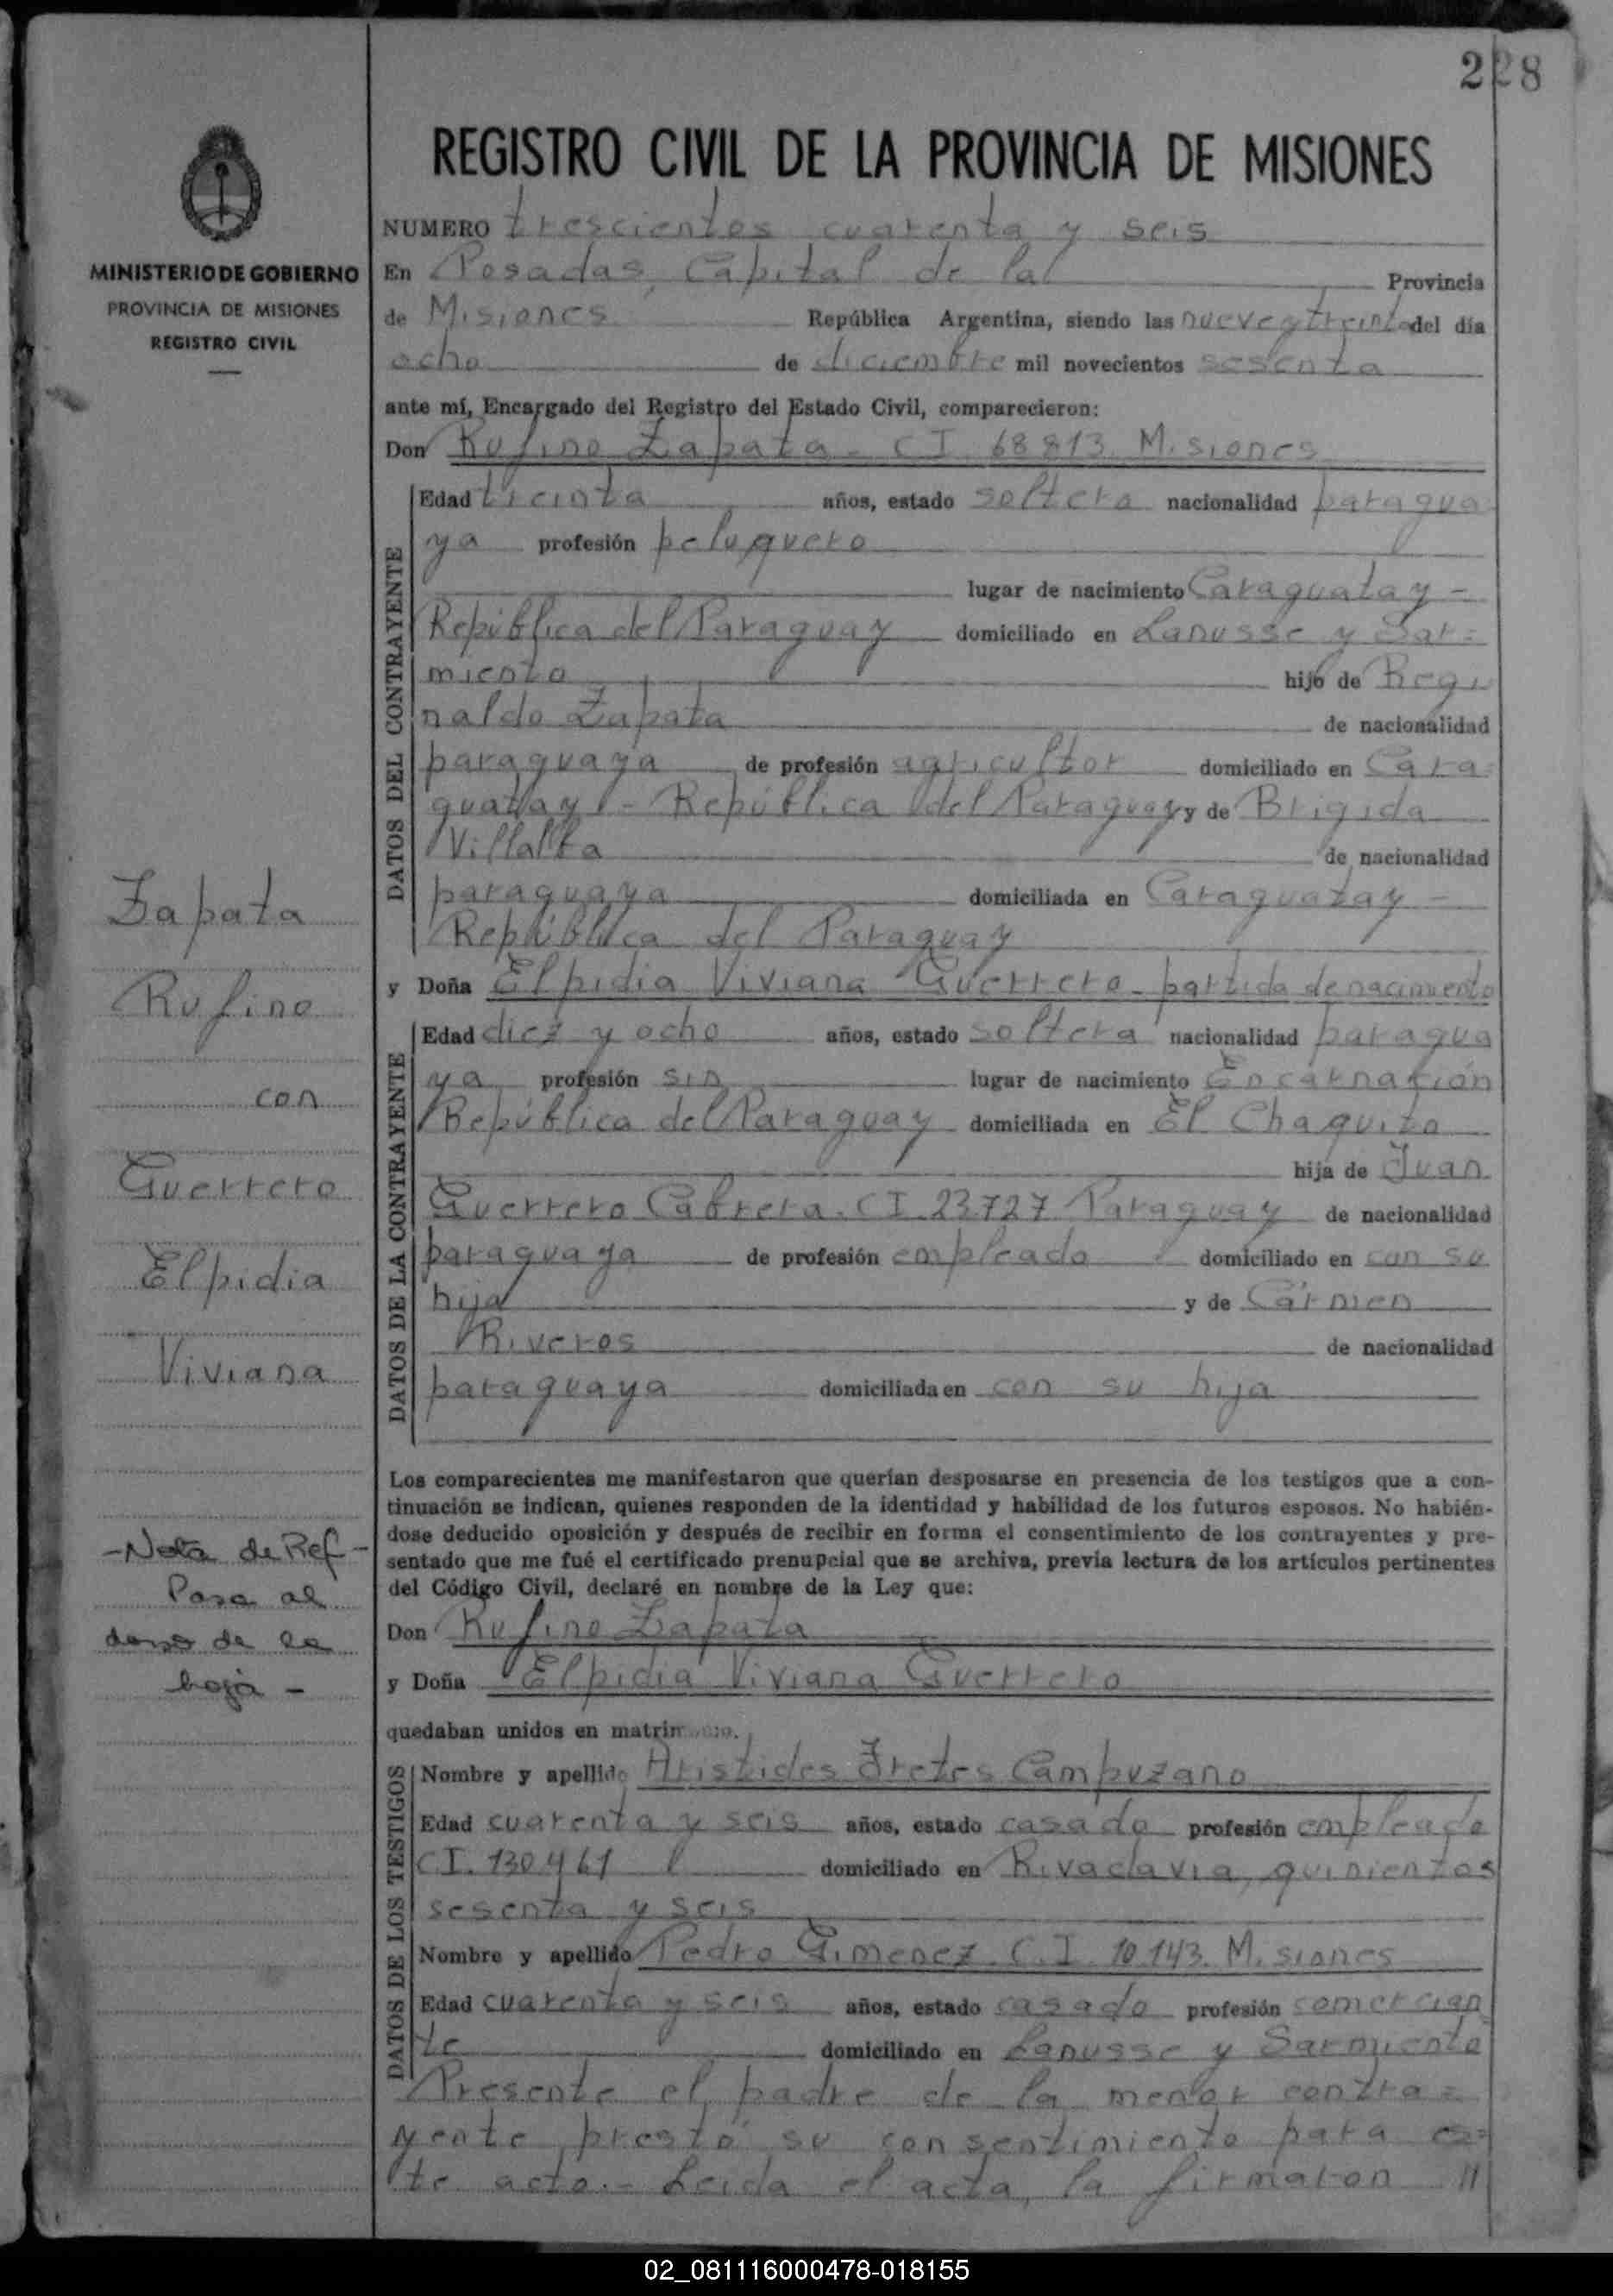 228
REGISTRO CIVIL DE LA PROVINCIA DE MISIONES
MINISTERIO DE GOBIERNO
PROVINCIA DE MISIONES
REGISTRO CIVIL
NUMERO trescientos cuarenta y seis
En Posadas, Capital de la Provincia
de Misiones República Argentina, siendo las nueve y treinta del día
ocho de diciembre mil novecientos sesenta
ante mí, Encargado del Registro del Estado Civil, comparecieron:
Don Rufino Zapata - CI 68813 Misiones
DATOS DEL CONTRAYENTE
Edad treinta años, estado soltero nacionalidad paragua
ya profesión peluquero
lugar de nacimiento Caraguatay -
República del Paraguay domiciliado en Lanusse y Sar=
miento hijo de Regi
naldo Zapata de nacionalidad
paraguaya de profesión agricultor domiciliado en Cara=
guatay - República del Paraguay y de Brigida
Villalba de nacionalidad
paraguaya domiciliada en Caraguatay -
República del Paraguay
y Doña Elpidia Viviana Guerrero - partida de nacimiento
DATOS DE LA CONTRAYENTE
Edad diez y ocho años, estado soltera nacionalidad paragua
ya profesión sin lugar de nacimiento Encarnación
República del Paraguay domiciliada en El Chaquito
hija de Juan
Guerrero Cabrera. CI 23.727 Paraguay de nacionalidad
paraguaya de profesión empleado domiciliado en con su
hija y de Carmen
Riveros de nacionalidad
paraguaya domiciliada en con su hija
Zapata
Rufino
con
Guerrero
Elpidia
Viviana
-Nota de Ref-
Pasa al
dorso de la
hoja -
Los comparecientes me manifestaron que querían desposarse en presencia de los testigos que a con-
tinuación se indican, quienes responden de la identidad y habilidad de los futuros esposos. No habién-
dose deducido oposición y después de recibir en forma el consentimiento de los contrayentes y pre-
sentado que me fué el certificado prenupcial que se archiva, previa lectura de los artículos pertinentes
del Código Civil, declaré en nombre de la Ley que:
Don Rufino Zapata
y Doña Elpidia Viviana Guerrero
quedaban unidos en matrimonio.
DATOS DE LOS TESTIGOS
Nombre y apellido Aristides Fretes Campuzano
Edad cuarenta y seis años, estado casado profesión empleado
CI. 130.461 domiciliado en Rivadavia, quinientos
sesenta y seis
Nombre y apellido Pedro Gimenez C.I. 10.143. Misiones
Edad cuarenta y seis años, estado casado profesión comercian
te domiciliado en Lanusse y Sarmiento
Presente el padre de la menor contra=
yente prestó su consentimiento para es=
te acto.- Leida el acta, la firmaron //
02_081116000478-018155